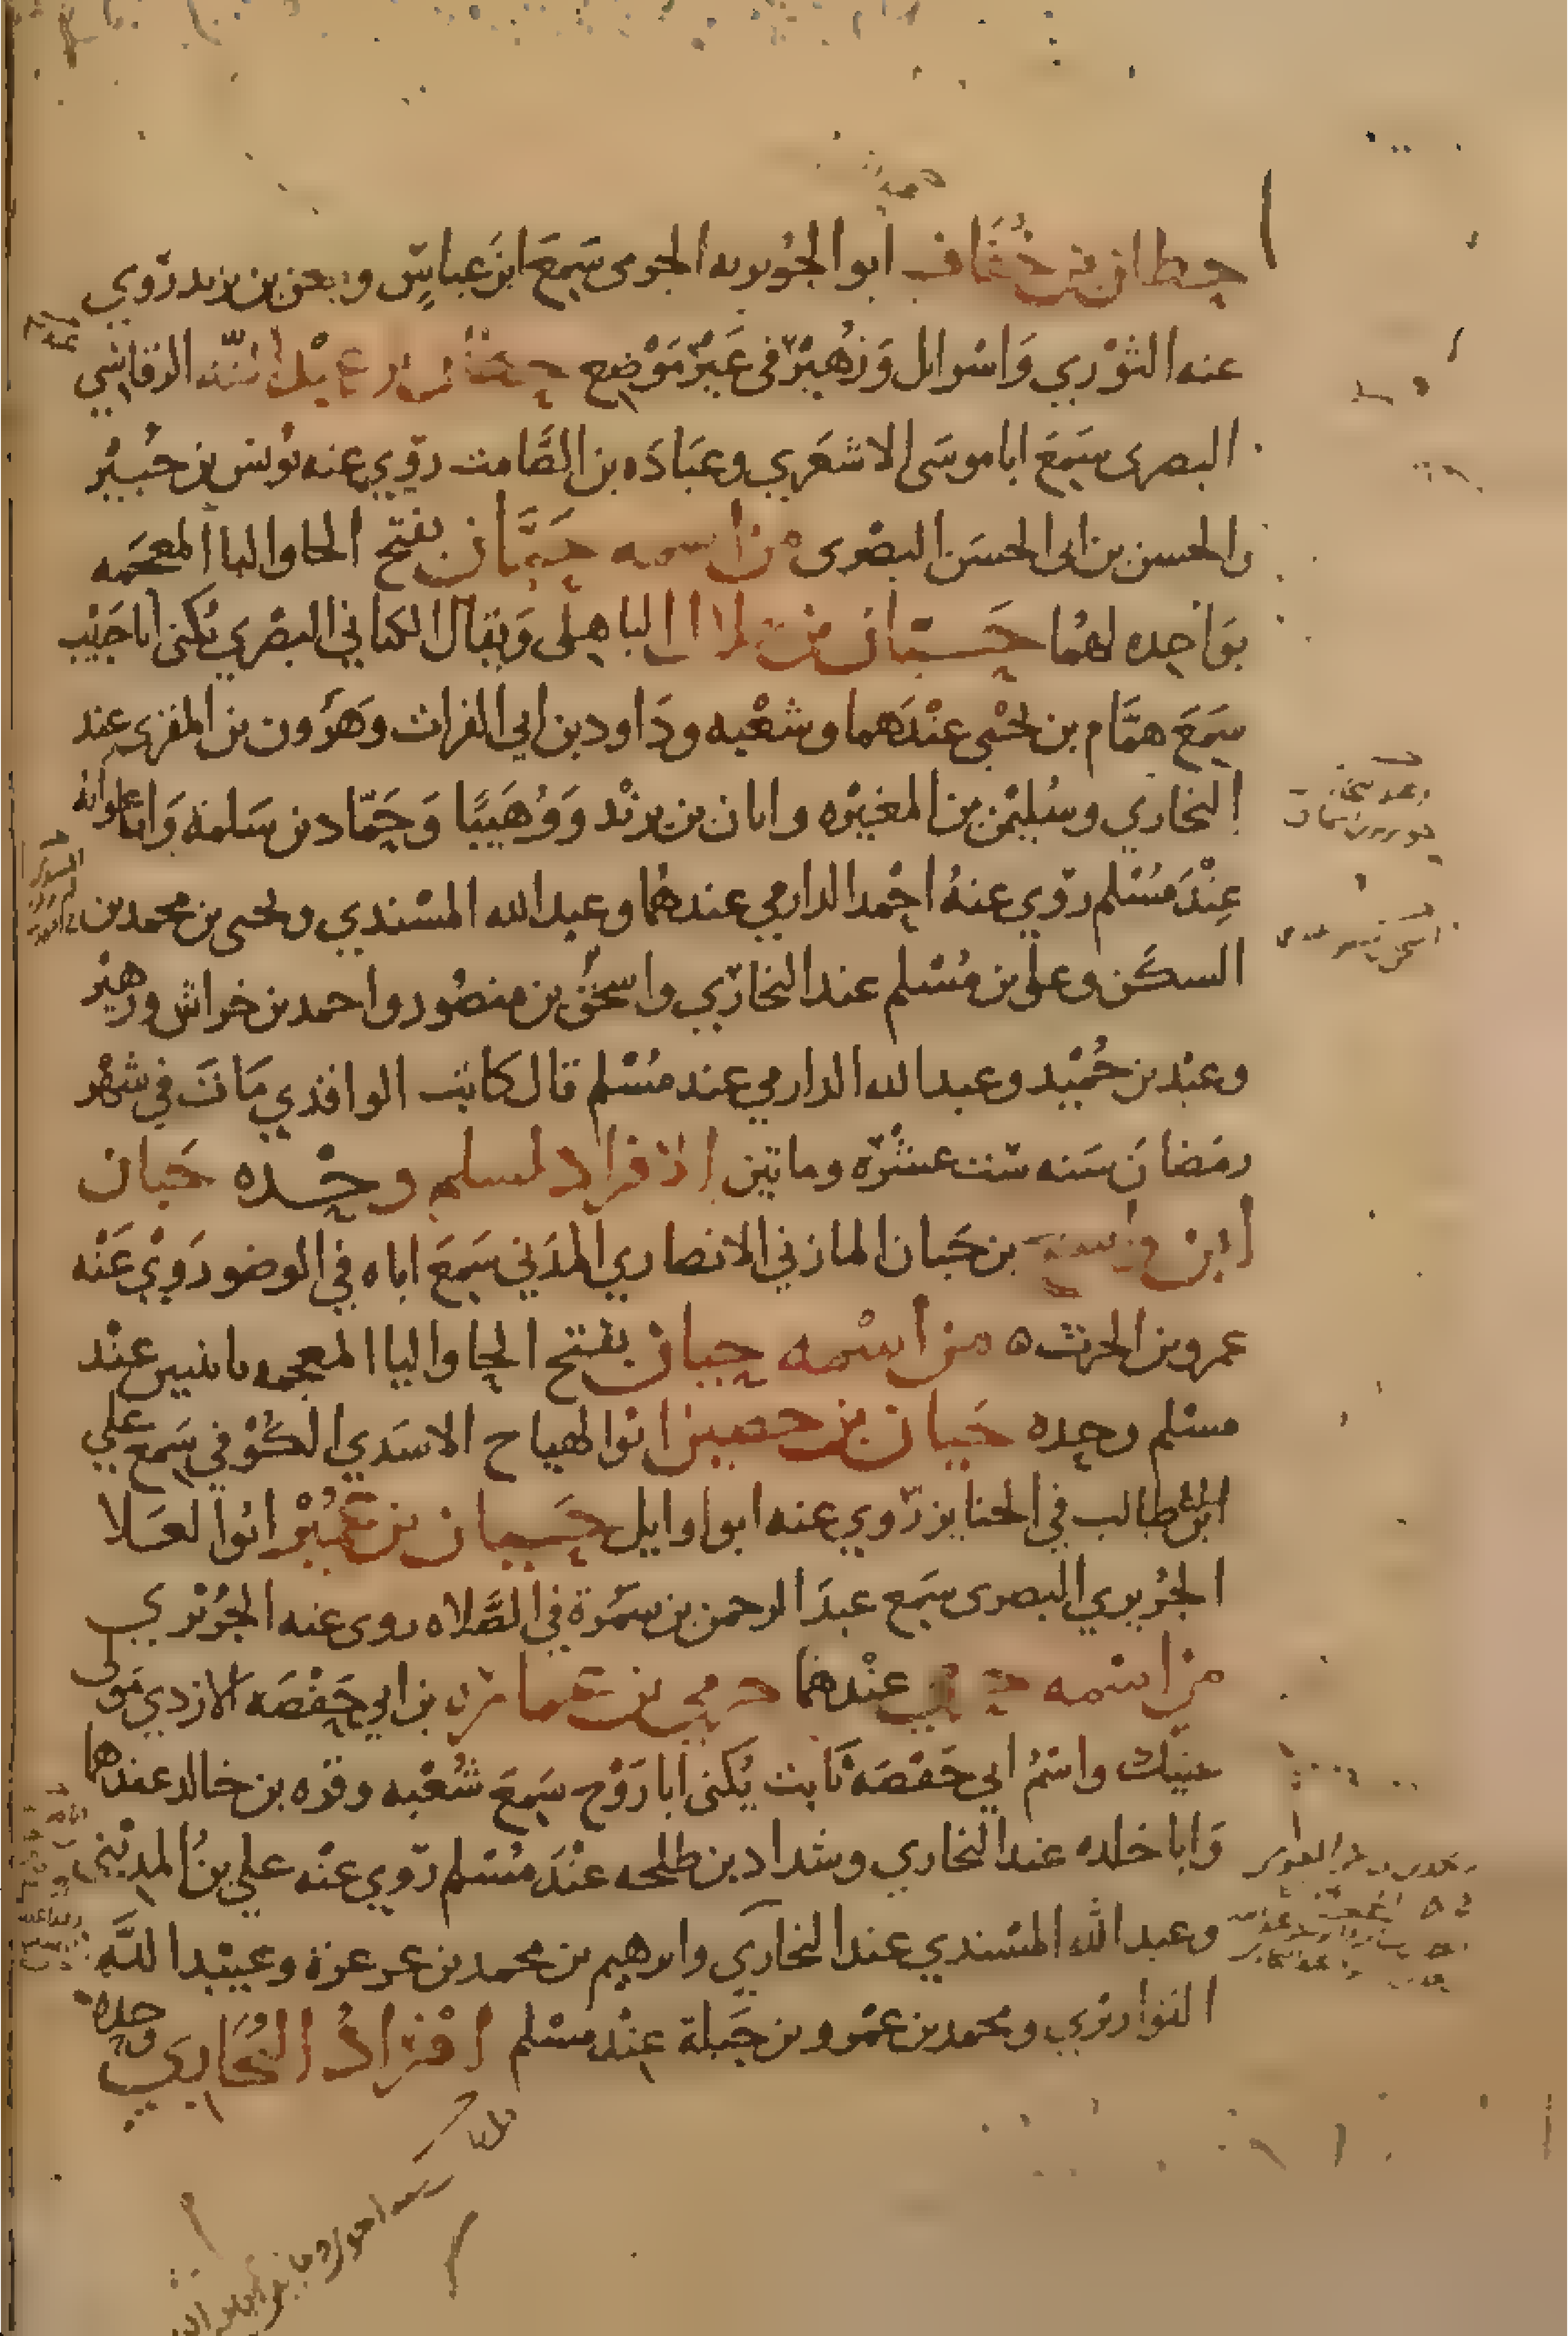 حطان بن خفاف ابوا الجويريه الجرمى سَمِعَ ابن عباسٍ ومعن بن يزيد رَوي
عنه الثوْري وَاسْرايل وَزُهيْرٌ فى غَيْرِ مَوْضع حطان بن عبْد الله الرقاشي
البصرى سَمِعَ اباموسَى الاشعَري وعبَادَه بن الصَّامت روَي عنه يونس بن جُبيْر
والحسن بن ابى الحسَن البصْرى من اسمه حَبَّان بفتح الحا والبا المعجمه
بوَاحِده لهمُا حَبَّان بن هلال الباهلى وَيقال الكناني البصْري يُكنى اباحَبْيب
سَمَعَ همَّام بن يحْيى عنْدَهما وشعْبه ودَاود بن ابي الفرات وَهَرُون بن المقرى عند
البخاري وسُليْمن بن المغيْره وابان بن يزيْد وَوُهَيبًا وَحَمّاد بن سَلمة وَاباعوانه
عِنْدَ مُسْلم روَي عنهُ احْمد الدارمي عندهُما وعبد الله المسْندي ويحيى بن محمد بن
السكَن وعلى بن مُسْلم عند البخاري واسحٰق بن منصُور واحمد بن خراش وزهير
وعبْد بن حُميْد وعبد الله الدارمي عند مُسْلم قال كاتب الواقدي مَاتَ في شهْر
رمَضانَ سَنه ستْ عشْرَه وماتين افراد لمسلم وحْده حَبان
ابن واسع بن حَبان المازني الانصاري المدَني سَمِعَ اباه في الوضو رَوَي عَنْه
عمرو بن الحرث ه من اسْمه حيان بفتح الحا واليا المعجمه باثنين عنْد
مسْلم وحده حَيان بن حصين ابوا الهياح الاسَدي الكُوْفي سَمع علي
ابن ابي طالب في الجنايز رَوي عنه ابوا وايل حَيان بن عُميْر ابوا العَلا
الجُريري البصرى سَمِع عبدَ الرحمن بن سَمُرة في الصَّلاه روى عنه الجُرَيْري
من اسْمه حرمي عنْدهُما حرمي بن عمارَه بن ابي حَفْصَه الازدي مَولى
عتيْك واسْمُ ابي حَفْصَه ثَابت يُكنى ابا رَوْح سَمِعَ شُعْبه وقره بن خالد عندهما
وَابا خلده عند البخاري وشداد بن طلحه عنْدَ مسْلم رَوي عنْه علي بنُ المدِيْني
وعبد الله المسْندي عند البخاري وابرهيم بن محمد بن عرعرة وعبيْد اللهِ
القواريْري ومحمد بن عمْرو بن جَبلة عنْد مسْلم افْرادُ البُخَاري وحده